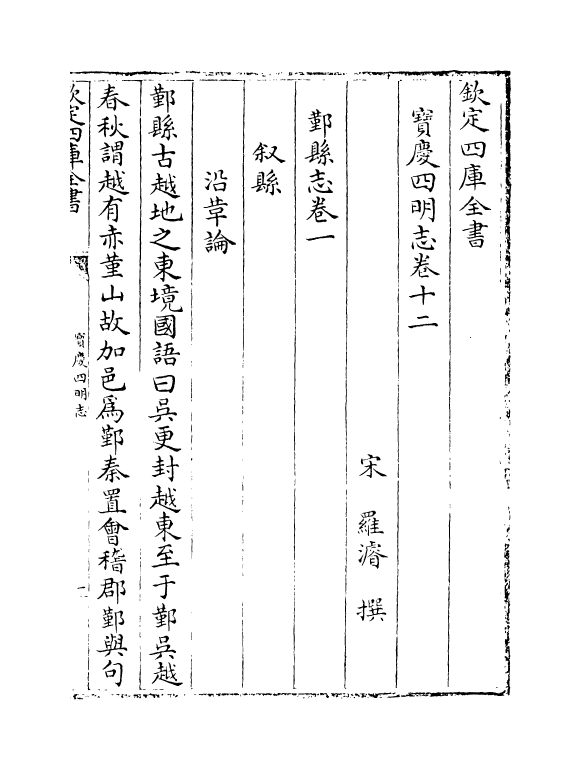 欽定四庫全書
寶慶四明志卷十二
宋 羅濬 撰
鄞縣志卷一
叙縣
沿革論
鄞縣古越地之東境國語曰吳更封越東至于鄞吳越
春秋謂越有赤堇山故加邑爲鄞秦置會稽郡鄞與句
欽定四庫全書
寶慶四明志
一